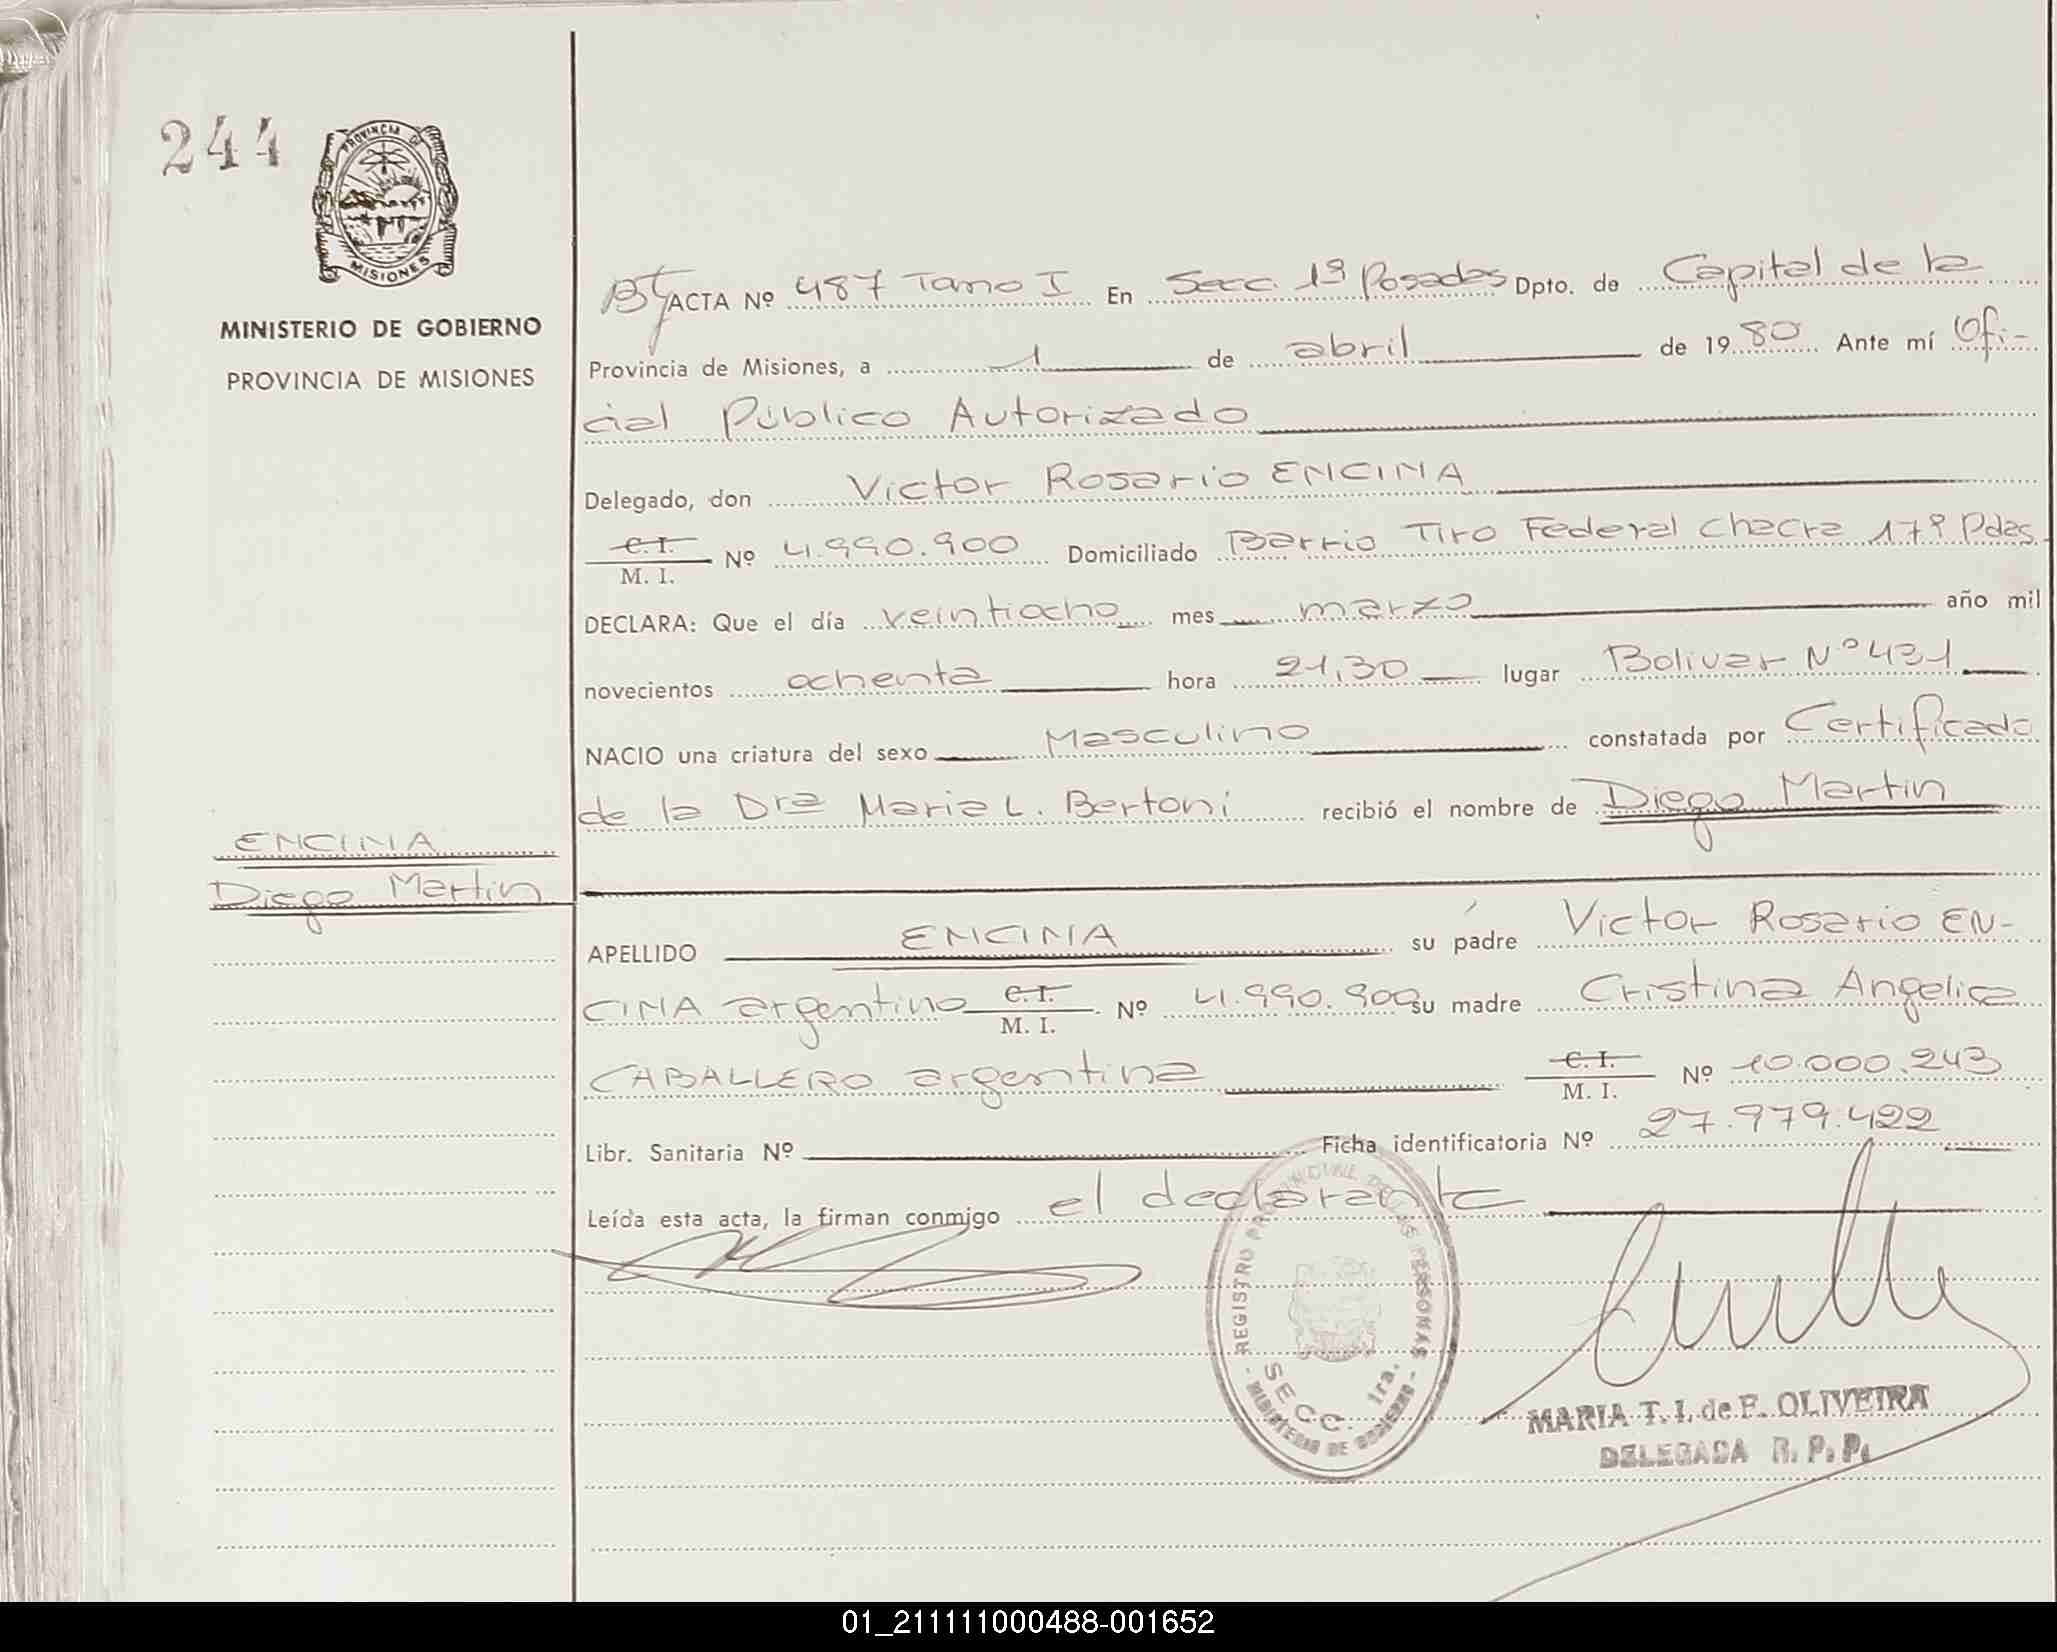 244
PROVINCIA DE
MISIONES
MINISTERIO DE GOBIERNO
PROVINCIA DE MISIONES
ACTA Nº 487 Tomo I En Secc. 1ª Posadas Dpto. de Capital de la
Provincia de Misiones, a 1 de abril de 1980 Ante mí Ofi-
cial Público Autorizado
Delegado, don Victor Rosario ENCINA
C.I. M. I. Nº 4.990.900 Domiciliado Barrio Tiro Federal Chacra 179 Pdas.
DECLARA: Que el día veintiocho mes marzo año mil
novecientos ochenta hora 21,30 lugar Bolivar Nº 431
NACIO una criatura del sexo Masculino constatada por Certificado
de la Dra Maria L. Bertoni recibió el nombre de Diego Martin
ENCINA
Diego Martin
APELLIDO ENCINA su padre Victor Rosario EN-
CINA argentino C.I. M. I. Nº 4.990.900 su madre Cristina Angelica
CABALLERO argentina C.I. M. I. Nº 10.000.243
Libr. Sanitaria Nº Ficha identificatoria Nº 27.979.422
Leída esta acta, la firman conmigo el declarante
REGISTRO PROVINCIAL DE LAS PERSONAS
SECC. 1ra.
- MINISTERIO DE GOBIERNO -
MARIA T. I. de F. OLIVEIRA
DELEGADA R. P. P.
01_211111000488-001652